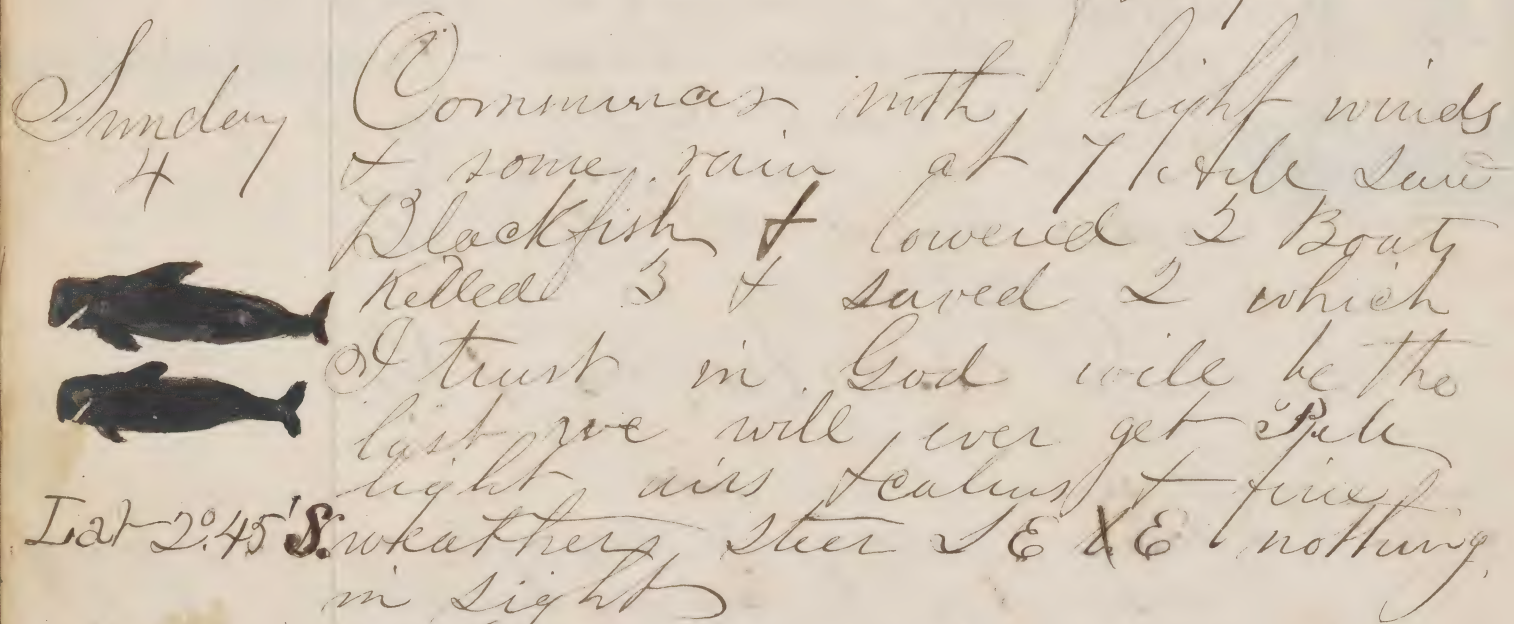 Sunday
4
Commences with light winds
& some rain at 7 AM saw
Blackfish & lowered 2 Boats
Killed 3 & saved 2 which
I trust in God will be the
last we will ever get
light airs & calms & fine
weather steer S E E nothing
in sight
Lat 2°.45' S.